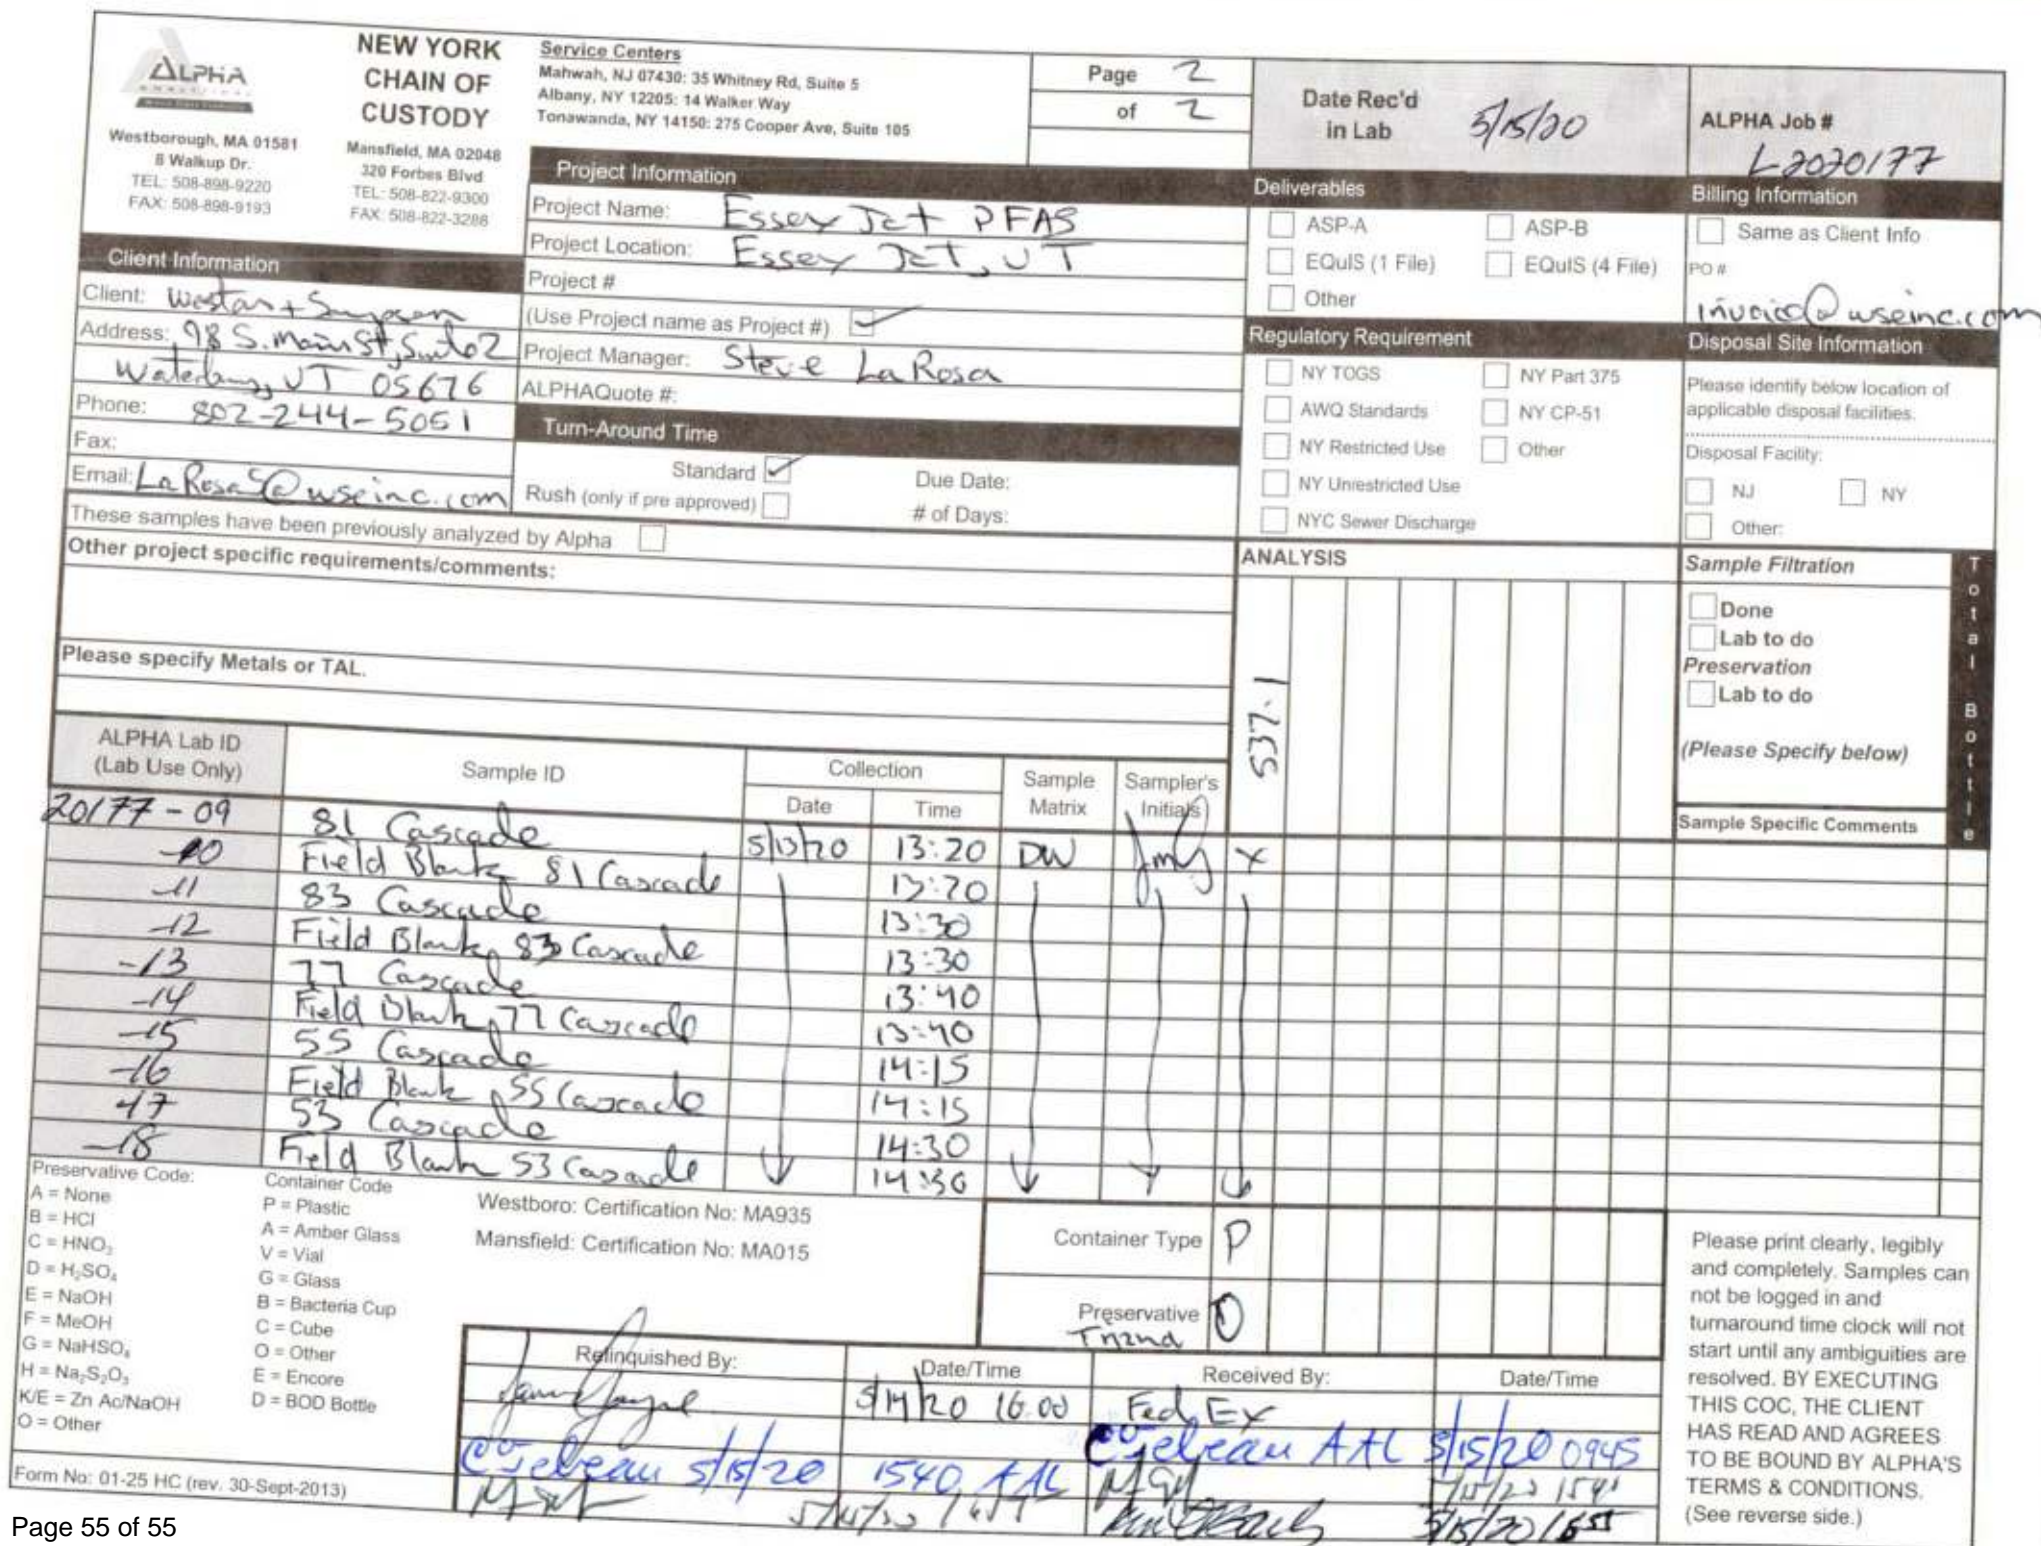 ALPHA
ANALYTICAL
Westborough, MA 01581
8 Walkup Dr.
TEL: 508-898-9220
FAX: 508-898-9193
NEW YORK
CHAIN OF
CUSTODY
Mansfield, MA 02048
320 Forbes Blvd
TEL: 508-822-9300
FAX: 508-822-3288
Service Centers
Mahwah, NJ 07430: 35 Whitney Rd, Suite 5
Albany, NY 12205: 14 Walker Way
Tonawanda, NY 14150: 275 Cooper Ave, Suite 105
Page 2
of 2
Date Rec'd
in Lab 5/15/20
ALPHA Job #
L2020177
Client Information
Client: Weston + Sampson
Address: 98 S. Main St, Suite 2
Waterbury, VT 05676
Phone: 802-244-5051
Fax:
Email: LaRosaS@wseinc.com
These samples have been previously analyzed by Alpha
Project Information
Project Name: Essex Jct PFAS
Project Location: Essex Jct, VT
Project #
(Use Project name as Project #)
Project Manager: Steve LaRosa
ALPHAQuote #:
Turn-Around Time
Standard
Due Date:
Rush (only if pre approved)
# of Days:
Deliverables
ASP-A
ASP-B
EQuIS (1 File)
EQuIS (4 File)
Other
Regulatory Requirement
NY TOGS
NY Part 375
AWQ Standards
NY CP-51
NY Restricted Use
Other
NY Unrestricted Use
NYC Sewer Discharge
Billing Information
Same as Client Info
PO #
invoice@wseinc.com
Disposal Site Information
Please identify below location of
applicable disposal facilities.
Disposal Facility:
NJ
NY
Other:
Other project specific requirements/comments:
Please specify Metals or TAL.
ANALYSIS
537.1
Sample Filtration
Done
Lab to do
Preservation
Lab to do
(Please Specify below)
Total Bottle
ALPHA Lab ID
(Lab Use Only)
Sample ID
Collection
Date
Time
Sample
Matrix
Sampler's
Initials
Sample Specific Comments
20177-09 81 Cascade 5/13/20 13:20 DW JmG X
-10 Field Blank 81 Cascade 13:20
-11 83 Cascade 13:30
-12 Field Blank 83 Cascade 13:30
-13 77 Cascade 13:40
-14 Field Blank 77 Cascade 13:40
-15 55 Cascade 14:15
-16 Field Blank 55 Cascade 14:15
-17 53 Cascade 14:30
-18 Field Blank 53 Cascade 14:30
Preservative Code:
A = None
B = HCl
C = HNO₃
D = H₂SO₄
E = NaOH
F = MeOH
G = NaHSO₄
H = Na₂S₂O₃
K/E = Zn Ac/NaOH
O = Other
Container Code
P = Plastic
A = Amber Glass
V = Vial
G = Glass
B = Bacteria Cup
C = Cube
O = Other
E = Encore
D = BOD Bottle
Westboro: Certification No: MA935
Mansfield: Certification No: MA015
Container Type P
Preservative O
Trizma
Relinquished By:
Date/Time
Received By:
Date/Time
5/14/20 16:00 Fed Ex
5/15/20 1540 AAL
AAL 5/15/20 0945
5/15/20 1655
Please print clearly, legibly
and completely. Samples can
not be logged in and
turnaround time clock will not
start until any ambiguities are
resolved. BY EXECUTING
THIS COC, THE CLIENT
HAS READ AND AGREES
TO BE BOUND BY ALPHA'S
TERMS & CONDITIONS.
(See reverse side.)
Form No: 01-25 HC (rev. 30-Sept-2013)
Page 55 of 55